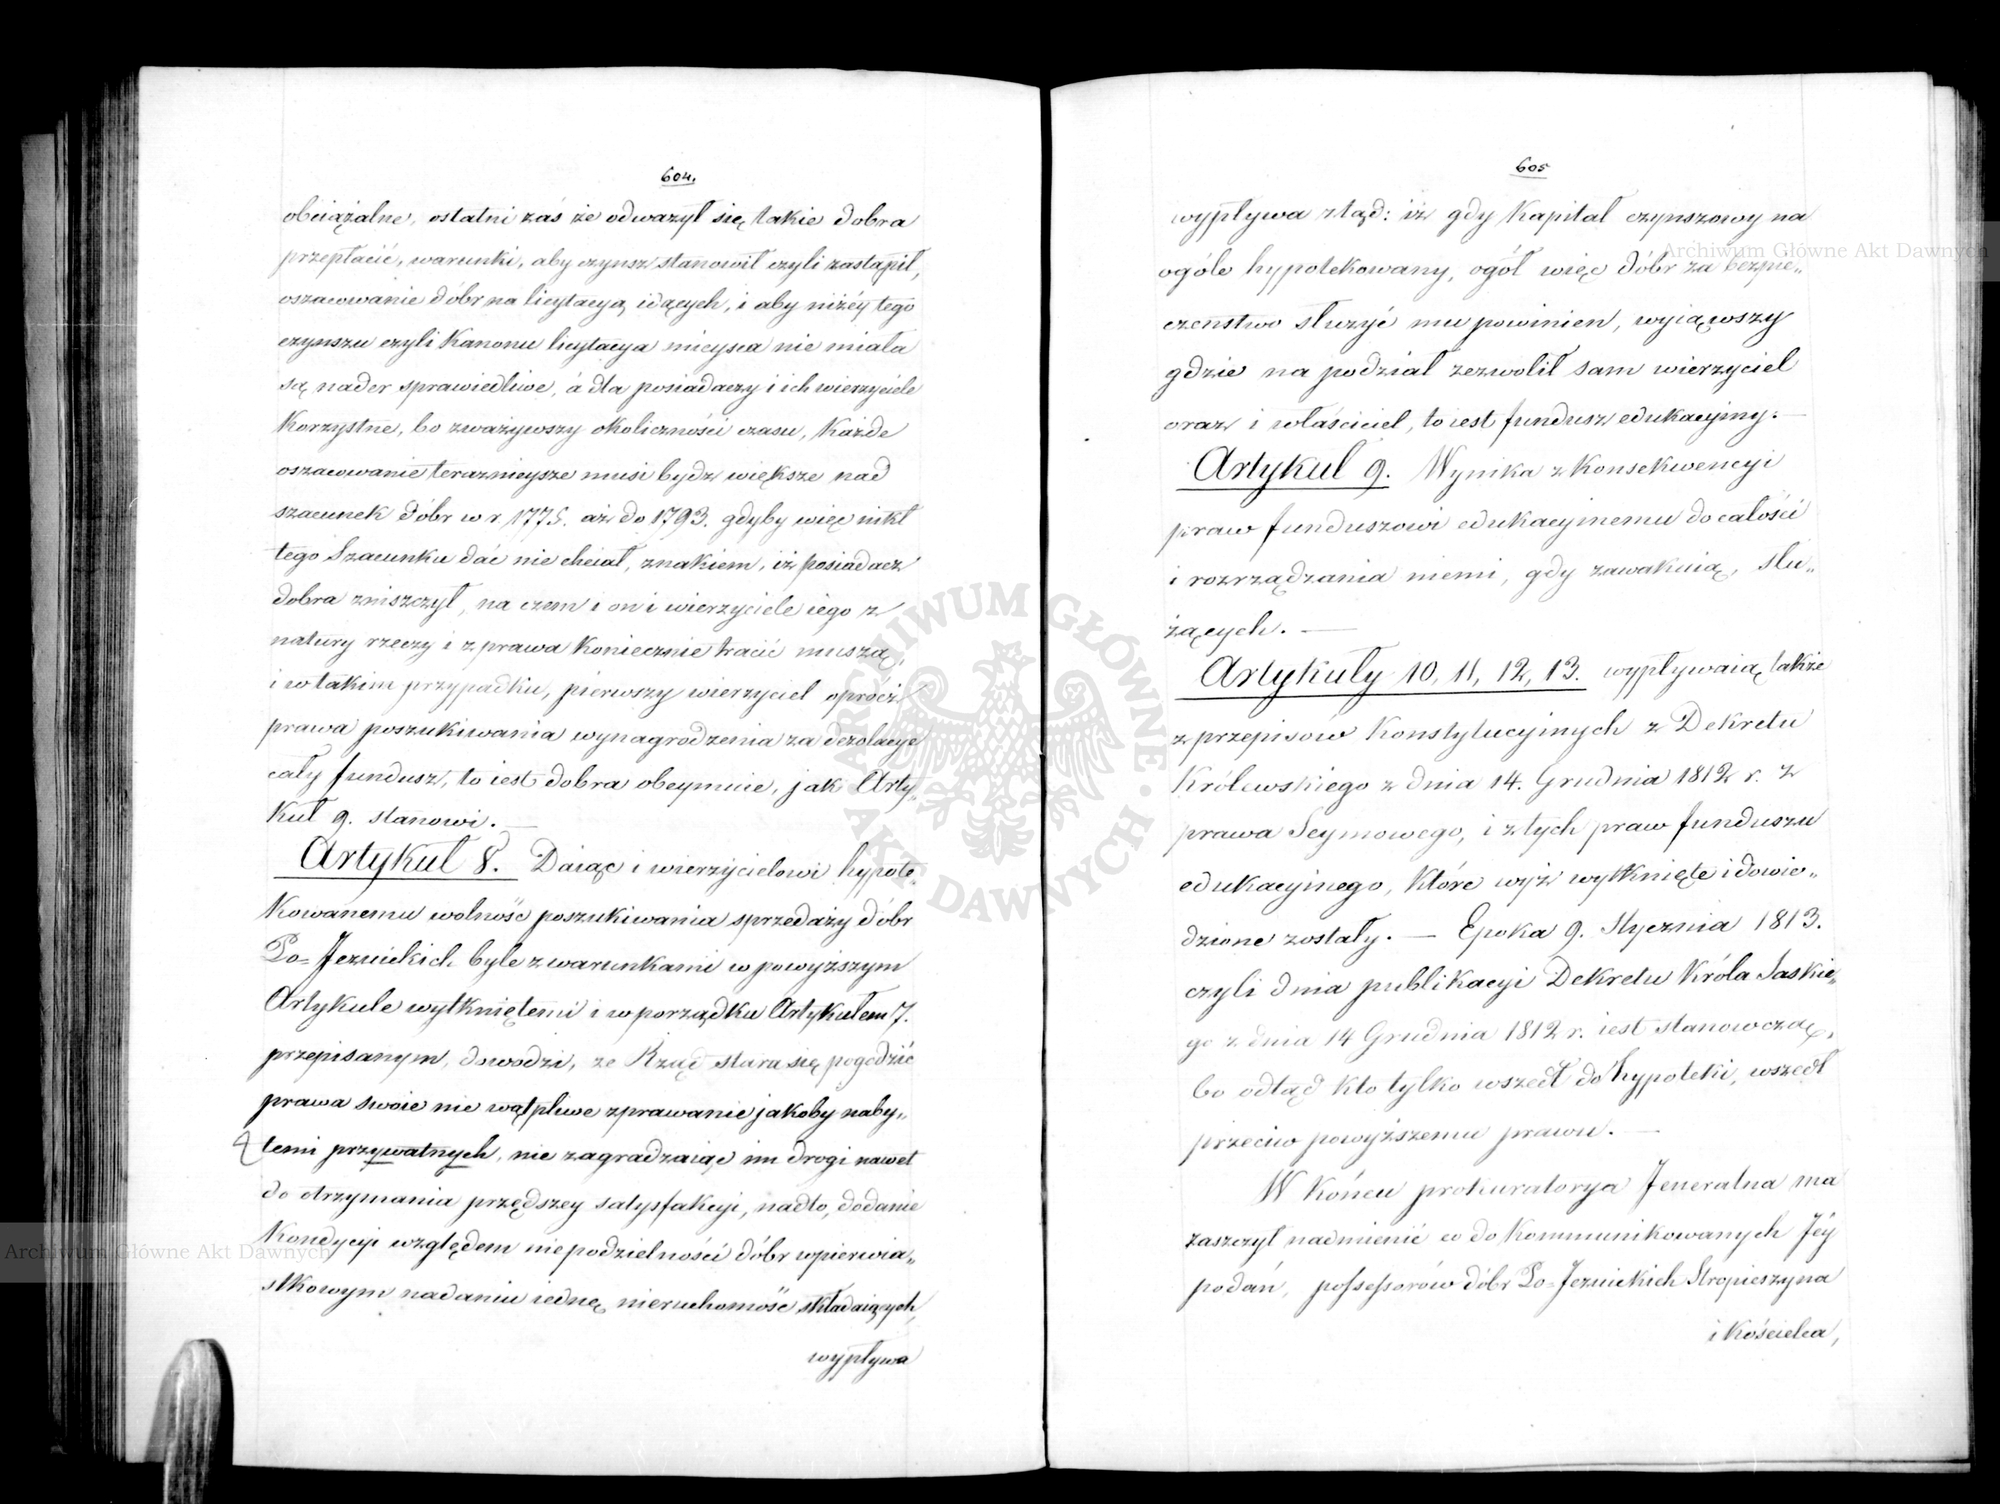 604.
obciążalne, ostatni zaś że odważył się takie dobra
przepłacić, warunki, aby czynsz stanowił czyli zastąpił,
oszacowanie dóbr na licytacyą idących, i aby niżéy tego
czynszu czyli Kanonu licytacya mieysca nie miała
są nader sprawiedliwe, á dla posiadaczy i ich wierzyciele
Korzystne, bo zważywszy okoliczności czasu, Każde
oszacowanie teraznieysze musi bydz większe nad
szacunek dóbr w r. 1775. aż do 1793. gdyby więc nikt
tego Szacunku dać nie chciał, znakiem, iż posiadacz
dobra zniszczył, na czem i on i wierzyciele iego z
natury rzeczy i z prawa Koniecznie tracić muszą,
i w takim przypadku, pierwszy wierzyciel oprócz
prawa poszukiwania wynagrodzenia za dezolacye
cały fundusz, to iest dobra obeymuie, jak Arty„
kuł 9. stanowi. —
Artykuł 8. Daiąc i wierzycielowi hypote„
Kowanemu wolność poszukiwania sprzedaży dóbr
Po=Jezuickich byle z warunkami w powyższym
Artykule wytkniętemi i w porządku Artykułem 7.
przepisanym, dowodzi, ze Rząd stara się pogodzić
prawa swoie nie wątpliwe z prawanie jakoby naby„
temi przywatnych, nie zagradzaiąc im drogi nawet
do otrzymania prędszey satysfakcyi, nadto, dodanie
Kondycyi względem niepodzielności dóbr w pierwia„
stkowym nadaniu iednę nieruchomość składaiących,
wypływa
605
wypływa ztąd: iż gdy Kapitał czynszowy na
ogóle hypotekowany, ogół więc dóbr za bezpie„
czeństwo służyć mu powinien, wyiąwszy
gdzie na podział zezwolił sam wierzyciel
oraz i właściciel, to iest fundusz edukacyiny. —
Artykuł 9. Wynika z Konsekwencyi
praw funduszowi edukacyinemu do całości
i rozrządzania niemi, gdy zawakuią, słu„
żących. —
Artykuły 10, 11, 12, 13. wypływaią także
z przepisów Konstytucyinych z Dekretu
Królewskiego z dnia 14. Grudnia 1812 r. z
prawa Seymowego, i z tych praw funduszu
edukacyinego, które wyż wytknięte i dowie„
dzione zostały. — Epoka 9. Stycznia 1813.
czyli dnia publikacyi Dekretu Króla Saskie„
go z dnia 14 Grudnia 1812 r. iest stanowczą,
bo odtąd kto tylko wszedł do hypoteki, wszedł
przeciw powyższemu prawu. —
W Końcu prokuratorya Jeneralna ma
zaszczyt nadmienić co do Kommunikowanych Jéy
podań, possessorów dóbr Po=Jezuickich Stropieszyna
i Kościelca,
Archiwum Główne Akt Dawnych
Archiwum Główne Akt Dawnych
ARCHIWUM GŁÓWNE AKT DAWNYCH